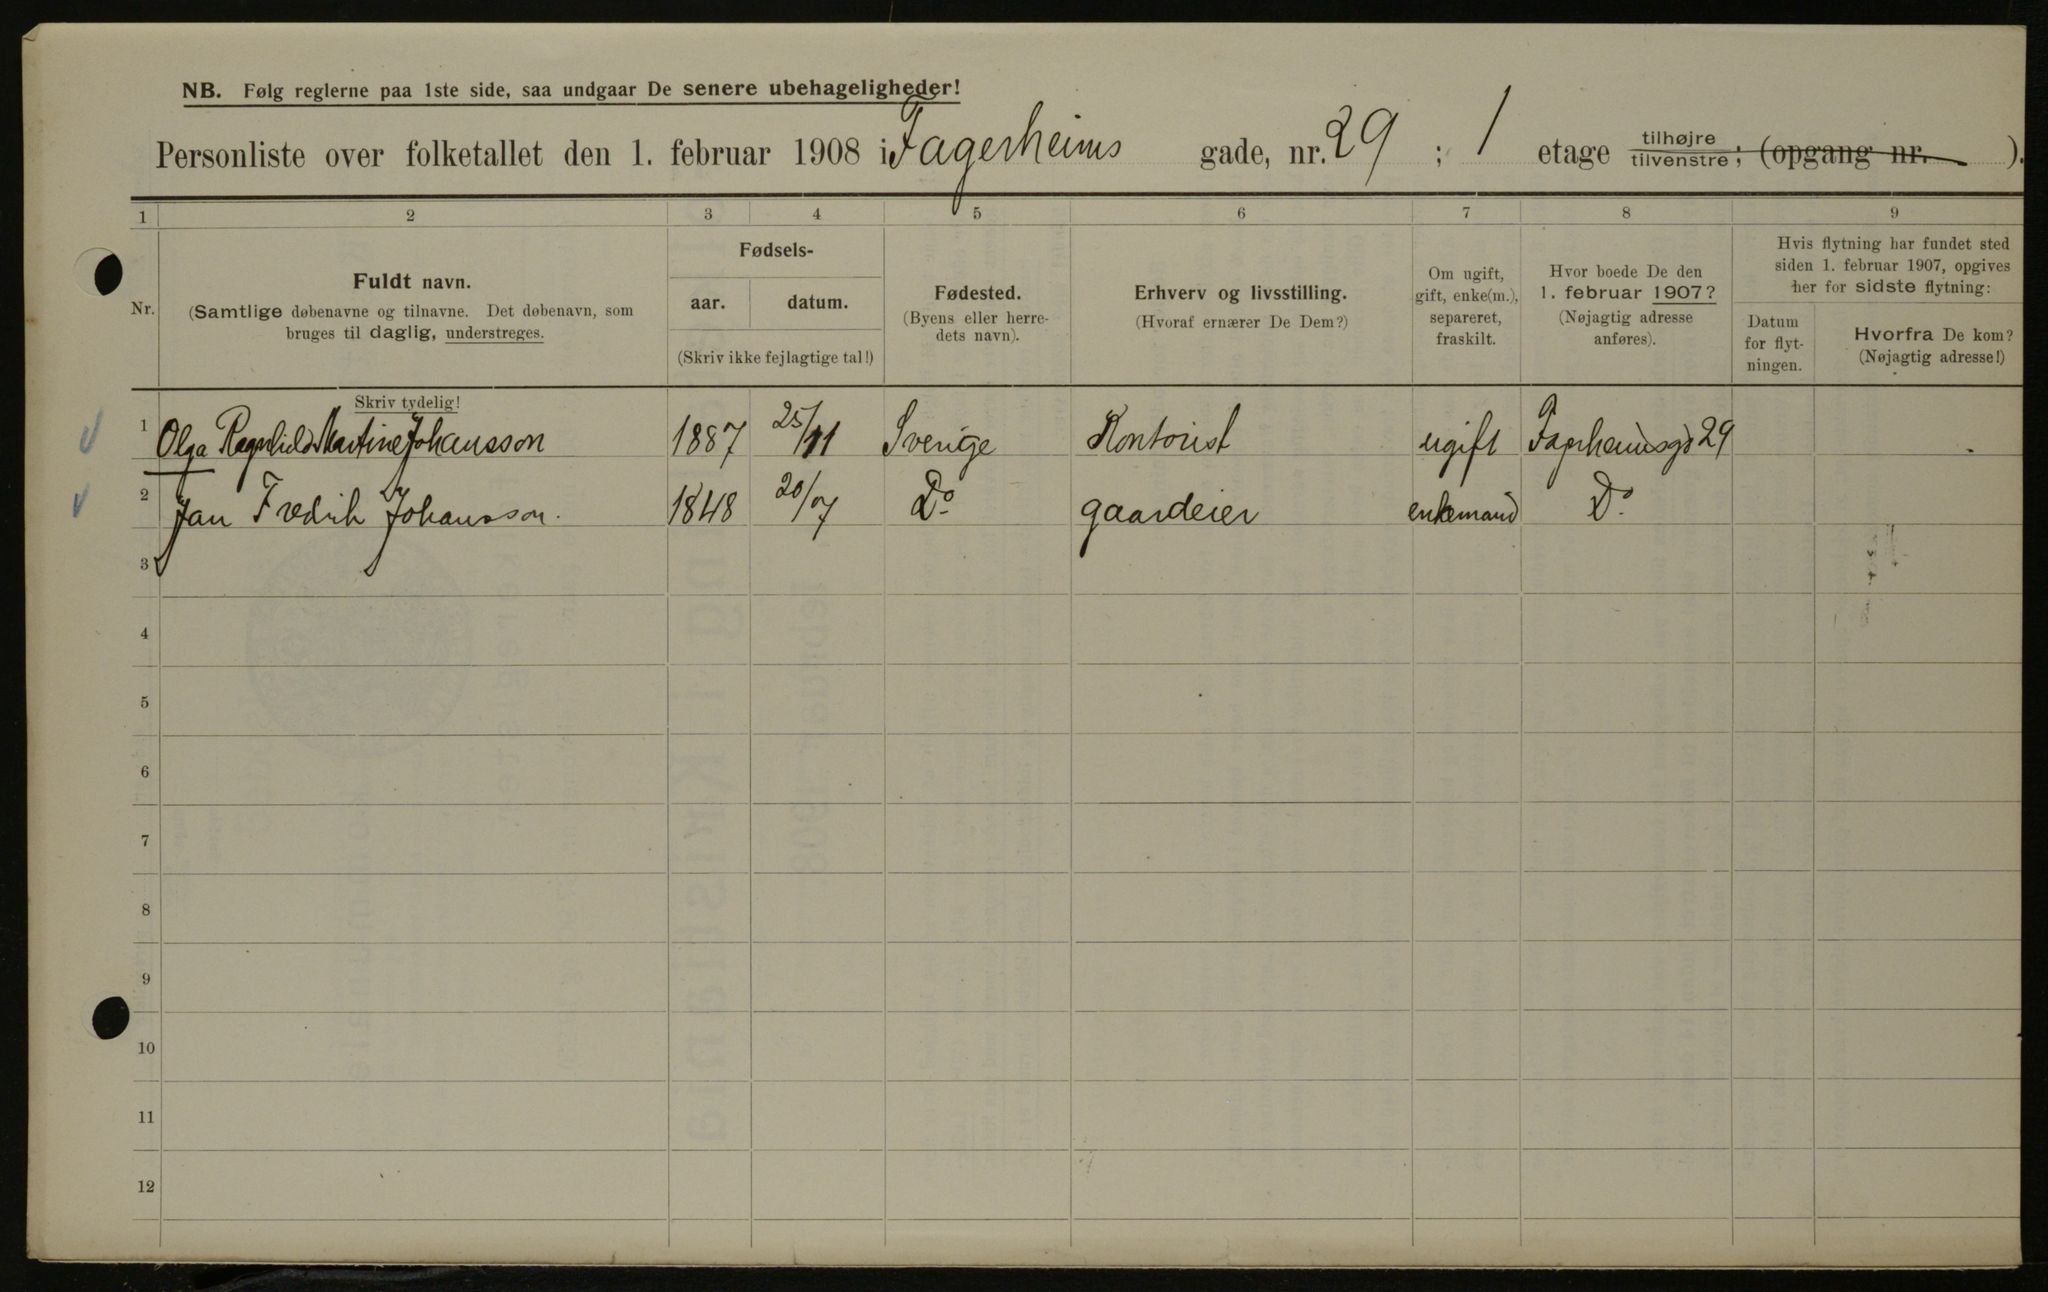 NB. Følg reglerne paa 1ste side, saa undgaar De senere ubehageligheder!
Personliste over folketallet den 1. februar 1908 i Fagerheims gade, nr. 29 ; 1 etage tilhøjre tilvenstre; (opgang nr. ).
1 2 3 4 5 6 7 8 9
Nr.
Fuldt navn.
(Samtlige døbenavne og tilnavne. Det døbenavn, som
bruges til daglig, understreges.
Fødsels-
aar. datum.
(Skriv ikke fejlagtige tal!)
Fødested.
(Byens eller herre-
dets navn).
Erhverv og livsstilling.
(Hvoraf ernærer De Dem?)
Om ugift,
gift, enke(m.),
separeret,
fraskilt.
Hvor boede De den
1. februar 1907?
(Nøjagtig adresse
anføres).
Hvis flytning har fundet sted
siden 1. februar 1907, opgives
her for sidste flytning:
Datum
for flyt-
ningen.
Hvorfra De kom?
(Nøjagtig adresse!)
Skriv tydelig!
1 Olga Ragnhild Martine Johansson 1887 25/11 Sverige Kontorist ugift Fagerheimsgd 29
2 Jan Fredrik Johansson. 1848 20/07 Do gaardeier enkemand Do
3
4
5
6
7
8
9
10
11
12